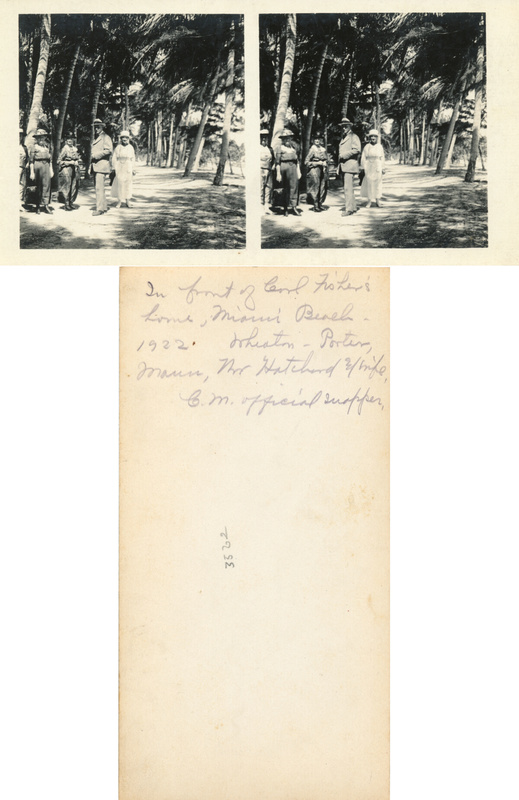 In front of Carl Fisher's
home, Miami Beach -
1922. Wheaton - Porter,
Mann, Mr Hatchard & wife,
C. M. official snapper,
3562